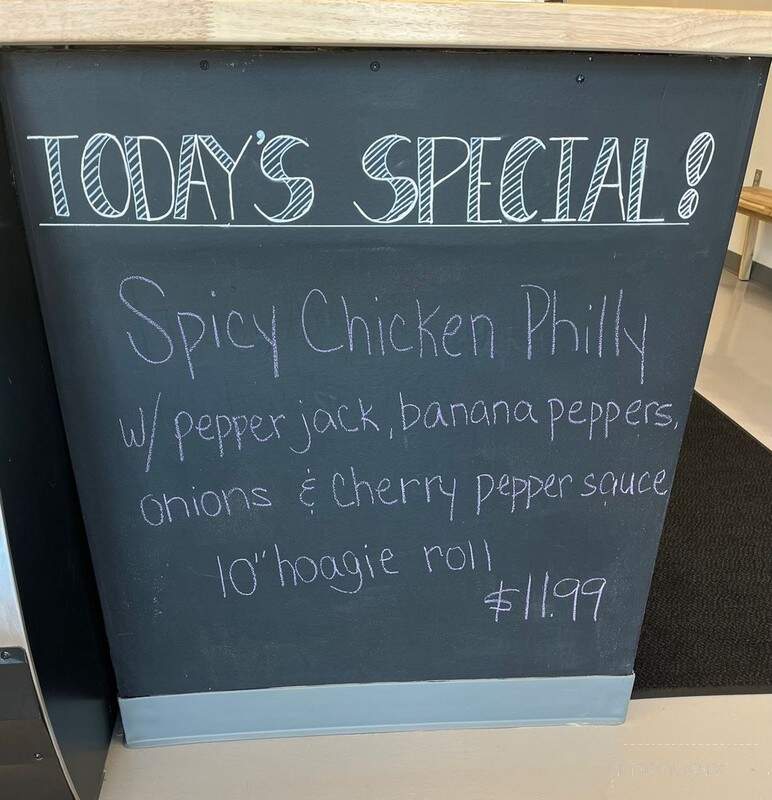 TODAY'S SPECIAL!
Spicy Chicken Philly
w/ pepper jack, banana peppers,
onions & Cherry pepper sauce
10" hoagie roll
$11.99